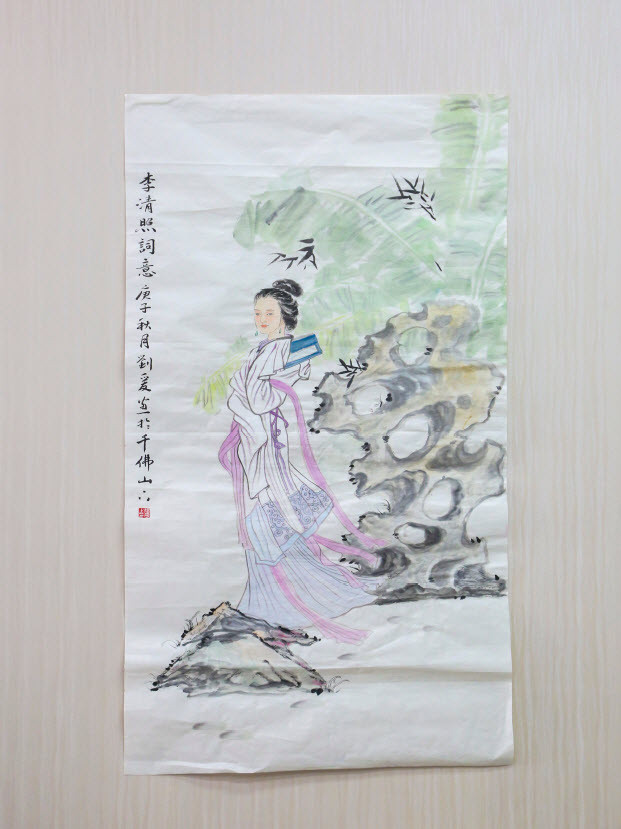 李清照詞意庚子秋月劉爰画於千佛山下